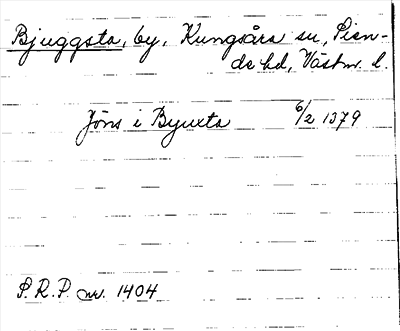 Bjuggsta, by, Kungsåra sn, Sien-
de hd, Västm. l.
Jöns i Byuxta 6/2 1379
S.R.P. nr. 1404